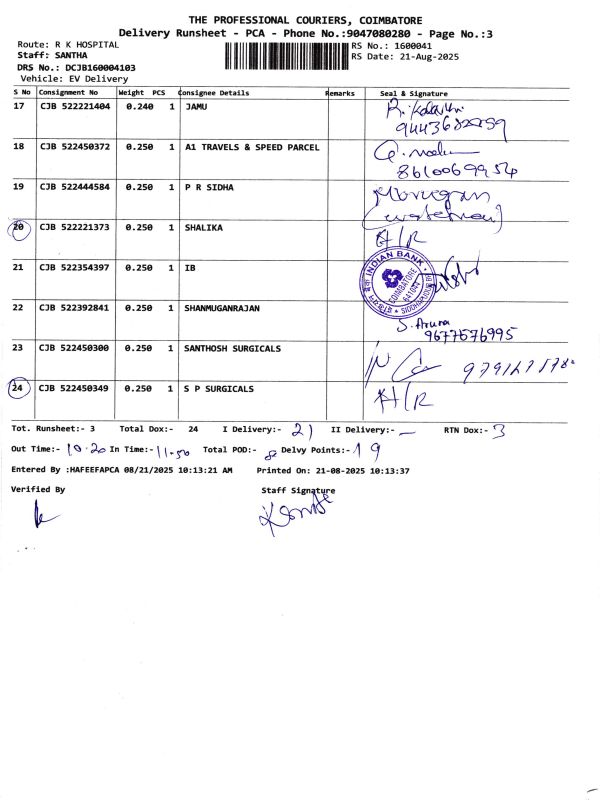 THE PROFESSIONAL COURIERS, COIMBATORE
Delivery Runsheet - PCA - Phone No.:9047080280 - Page No.:3
Route: R K HOSPITAL
RS No.: 1600041
Staff: SANTHA
RS Date: 21-Aug-2025
DRS No.: DCJB160004103
Vehicle: EV Delivery
S No Consignment No Weight PCS Consignee Details Remarks Seal & Signature
17 CJB 522221404 0.240 1 JAMU
9443682259
18 CJB 522450372 0.250 1 A1 TRAVELS & SPEED PARCEL
8610069954
19 CJB 522444584 0.250 1 P R SIDHA Murugan
(watchman)
20 CJB 522221373 0.250 1 SHALIKA A/R
21 CJB 522354397 0.250 1 IB
INDIAN BANK
COIMBATORE
641044
22 CJB 522392841 0.250 1 SHANMUGANRAJAN S. Aruna
9677576995
23 CJB 522450300 0.250 1 SANTHOSH SURGICALS
24 CJB 522450349 0.250 1 S P SURGICALS A/R
Tot. Runsheet:- 3 Total Dox:- 24 I Delivery:- 21 II Delivery:- — RTN Dox:- 3
Out Time:- 10.20 In Time:- 11.50 Total POD:- 8 Delvy Points:- 19
Entered By :HAFEEFAPCA 08/21/2025 10:13:21 AM Printed On: 21-08-2025 10:13:37
Verified By Staff Signature